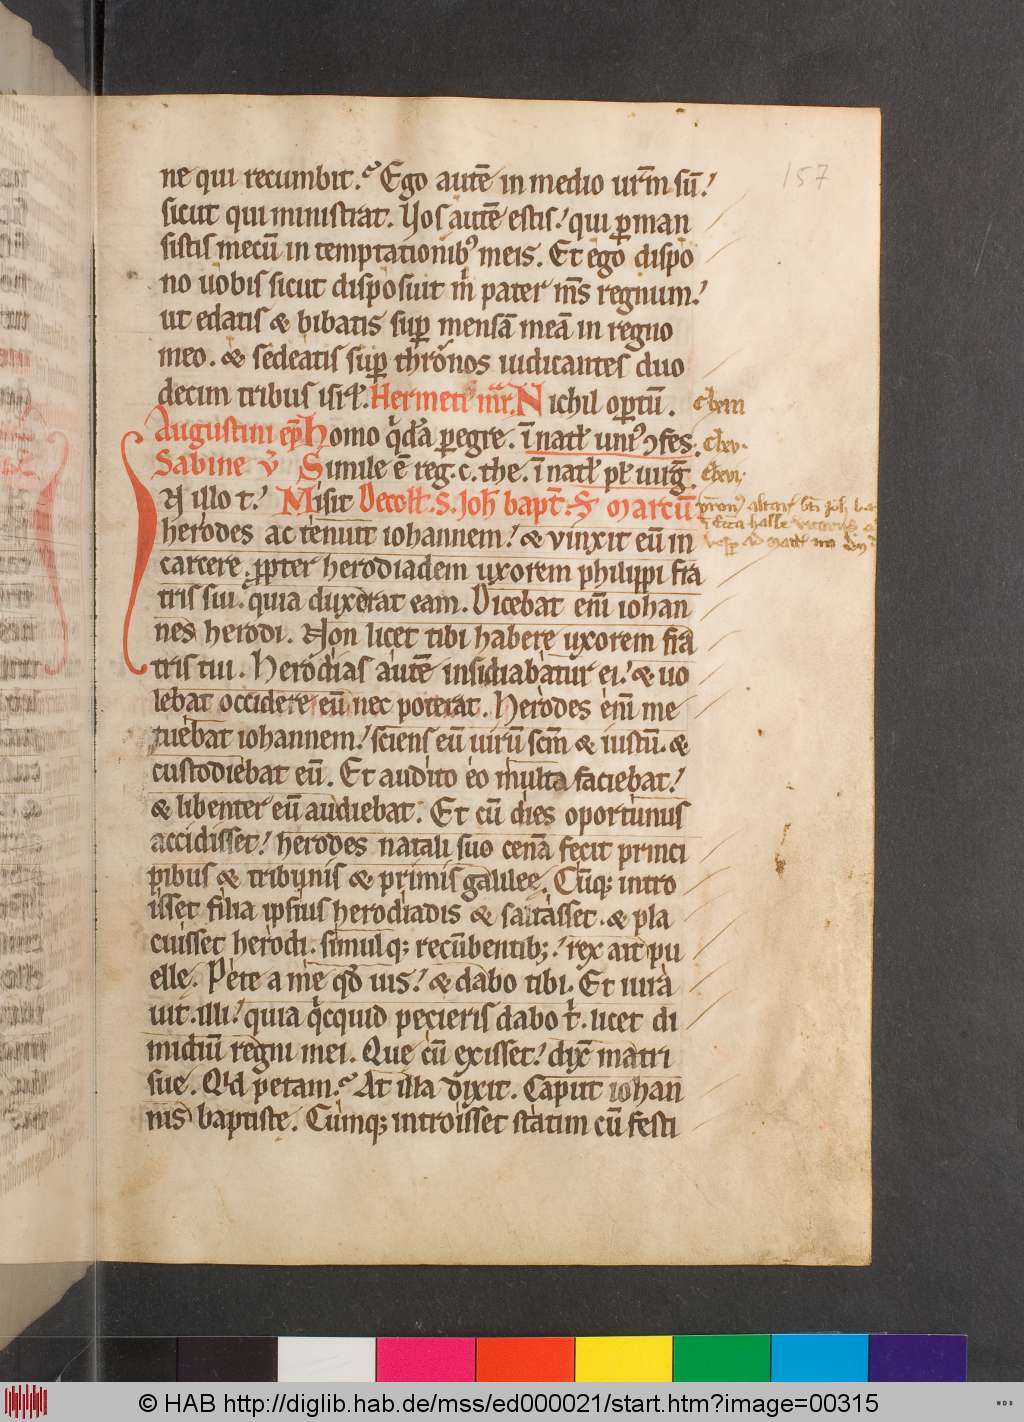 157
ne qui recumbit. Ego autē in medio ur̄m sū.
sicut qui ministrat. Vos autē estis. qui ꝑman
sistis mecū in temptationibꝰ meis. Et ego dispo
no uobis sicut disposuit m̄ pater m̄s regnum.
ut edatis & bibatis suꝑ mensā meā in regno
meo. & sedeatis suꝑ thronos iudicantes duo
decim tribus isrl̄. Hermetꝭ mr̄. Nichil opertū.
Augustini ep̄i Homo q̇dā ꝑegre. ī natl̄ uniꝰ ɔfes.
Sabine v̄ Simile ē reg. c. the. ī natl̄ pl̄ uirḡ.
IN illo t. Misit Decoll̄. S. Joh̄ bapt̄. S. Marcū
herodes ac tenuit iohannem. & vinxit eū in
carcere. ꝓpter herodiadem uxorem philippi fra
tris sui. quia duxerat eam. Dicebat eni̅ iohan
nes herodi. Non licet tibi habere uxorem fra
tris tui. Herodias autē insidiabatur ei. & uo
lebat occidere eū nec poterat. Herodes eni̅ me
tuebat iohannem. sciens eū uirū scm̄ & iustū. &
custodiebat eū. Et audito eo multa faciebat.
& libenter eū audiebat. Et cū dies oportunus
accidisset. herodes natali suo cenā fecit princi
pibus & tribunis & primis galilee. Cūq; intro
isset filia ipsius herodiadis & saltasset. & pla
cuisset herodi. simul q; recūbentib;. rex ait pu
elle. Pete a me qd̄ uis. & dabo tibi. Et iura
uit. illi. quia q̇cquid pecieris dabo t̄. licet di
midiū regni mei. Que cū exisset. dix̄ matri
sue. Qd̄ petam. At illa dixit. Caput iohan
nis baptiste. Cumq; introisset statim cū festi
© HAB http://diglib.hab.de/mss/ed000021/start.htm?image=00315